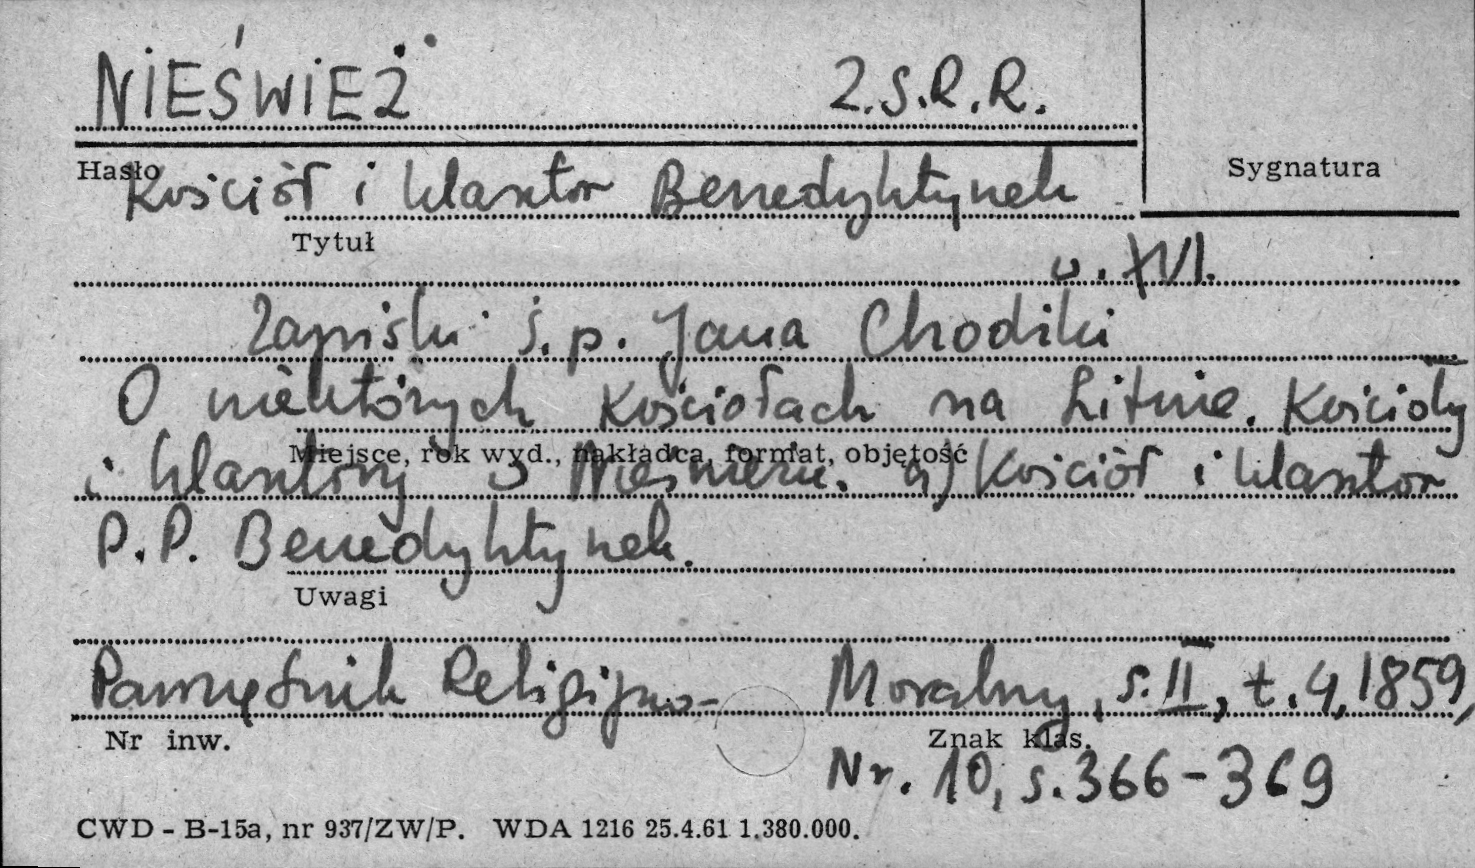 NIEŚWIEŻ Z.S.R.R.
Hasło
Sygnatura
Kościół i klasztor Benedyktynek
Tytuł
w. XVI.
Zapiski ś.p. Jana Chodźki
O niektórych kościołach na Litwie. Kościoły
Miejsce, rok wyd., nakładca, format, objętość
i klasztory w Nieświeżu. 4) Kościół i klasztor
P.P. Benedyktynek.
Uwagi
Pamiętnik Religijno- Moralny, s. II, t. 4, 1859,
Nr inw. Znak klas.
Nr. 10, s. 366-369
CWD - B-15a, nr 937/ZW/P. WDA 1216 25.4.61 1.380.000.